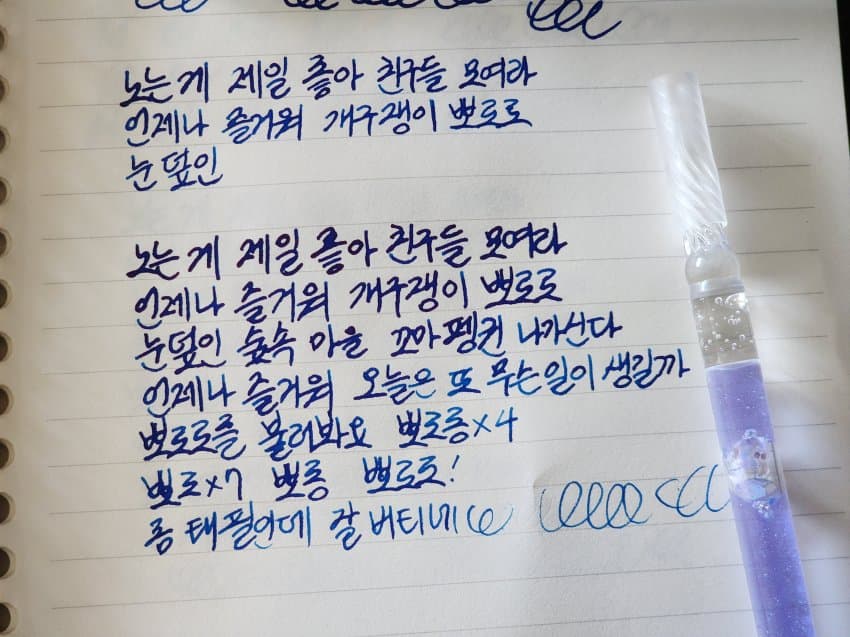 노는게 제일 좋아 친구들 모여라
언제나 즐거워 개구쟁이 뽀로로
눈덮인
노는게 제일 좋아 친구들 모여라
언제나 즐거워 개구쟁이 뽀로로
눈덮인 숲속 마을 꼬마펭귄 나가신다
언제나 즐거워 오늘은 또 무슨일이 생길까
뽀로로를 불러봐요 뽀로롱×4
뽀로×7 뽀롱 뽀로로!
좀 태필인데 잘 버티네